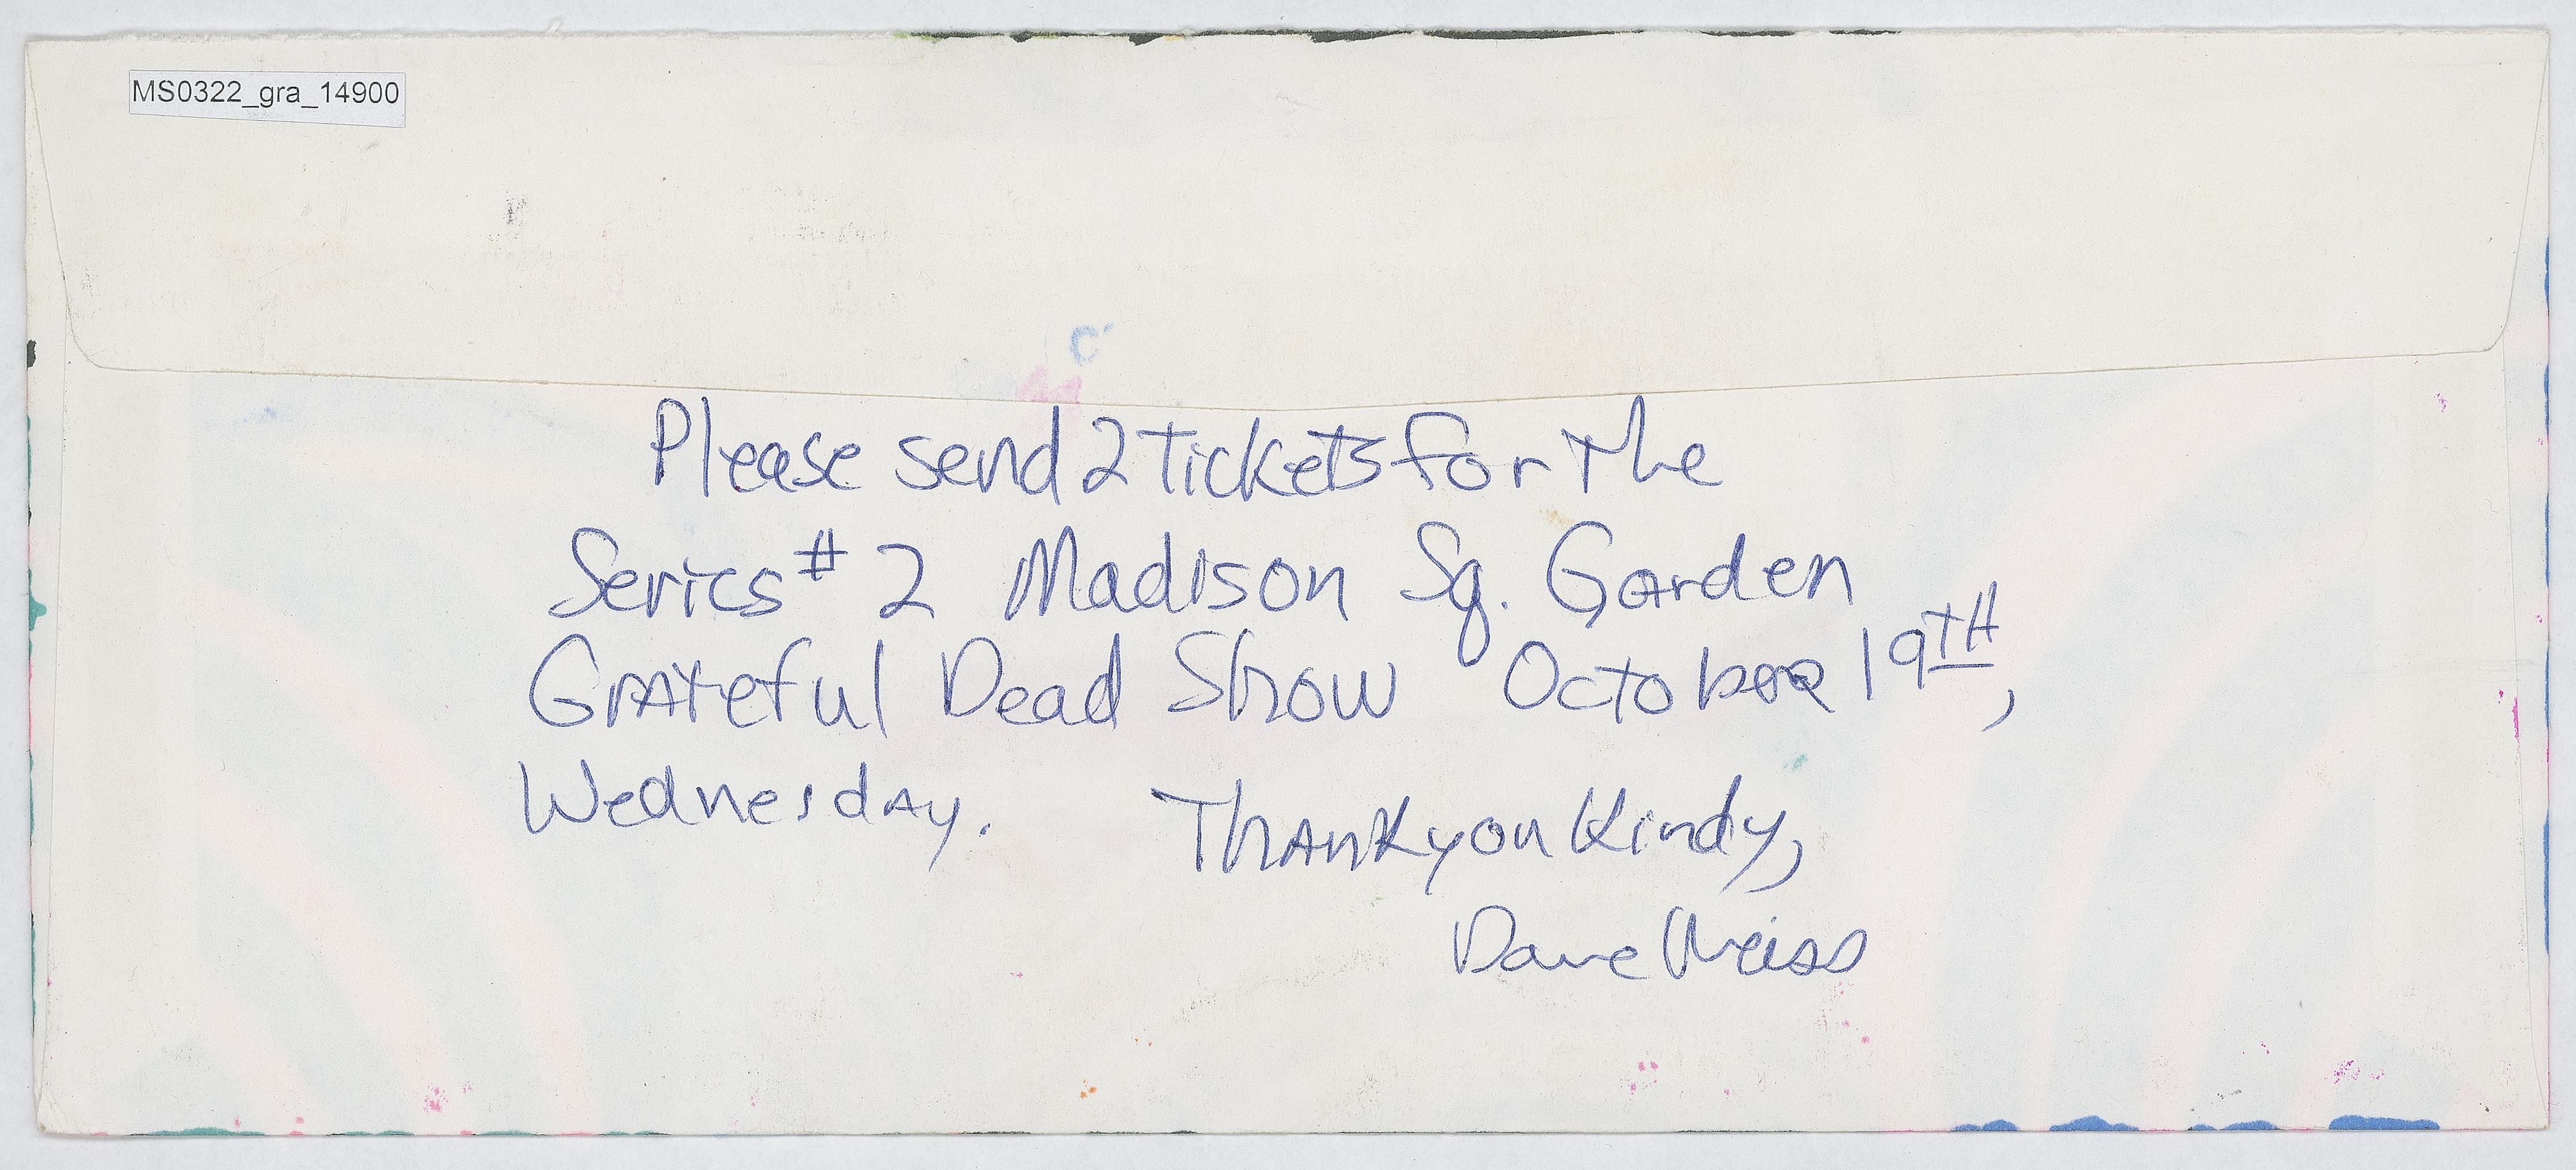 MS0322_gra_14900
Please send 2 Tickets for The
Series # 2 Madison Sq. Garden
Grateful Dead Show October 19TH,
Wednesday. Thank you Kindy,
Dave Weiss